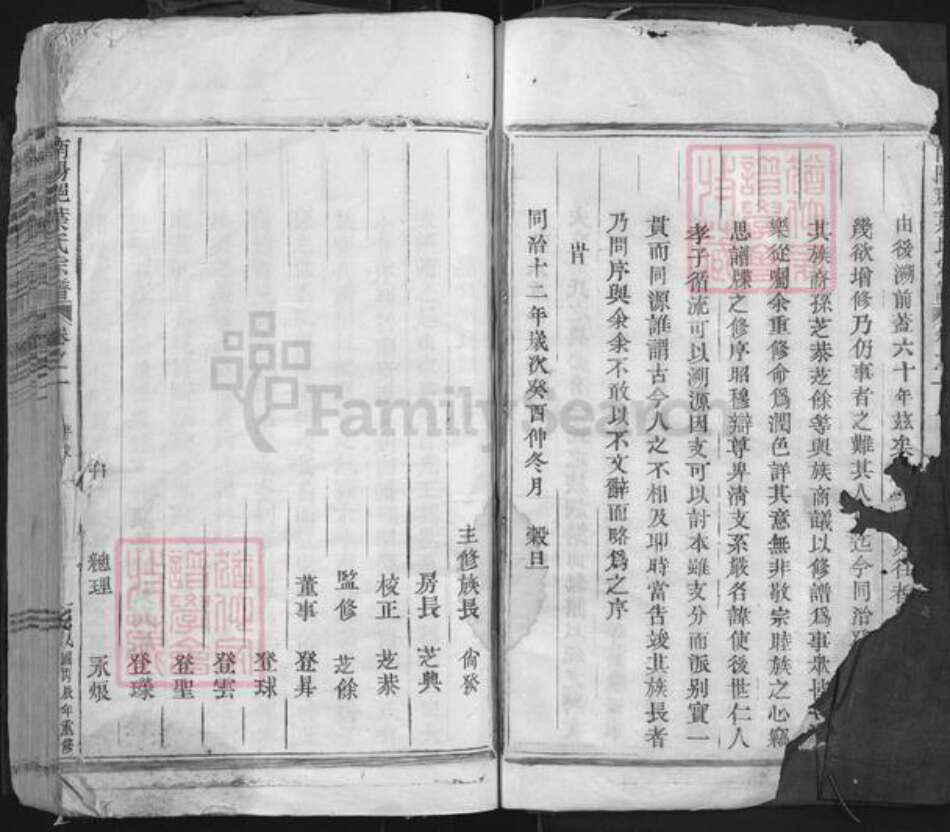 由後溯前蓋六十年茲
幾欲增修乃仍事者之難其人迄今同治
其族裔孫芝棻芝餘等與族商議以修譜爲事
樂從囑余重修命爲潤色詳其意無非敬宗睦族之心竊
思譜牒之修序昭穆辯尊卑清支系嚴名諱使後世仁人
孝子循流可以溯源因支可以討本雖支分而派別實一
貫而同源誰謂古今人之不相及耶時當告竣其族長者
乃問序與余余不敢以不文辭而略爲之序
旹
同治十二年歲次癸酉仲冬月 穀旦
主修族長 尙發
房長 芝興
校正 芝棻
監修 芝餘
董事 登昇
登球
登雲
登聖
登瑧
總理 永烺
南陽邑葉氏宗譜 卷之一
民國四年重修
FamilySearch